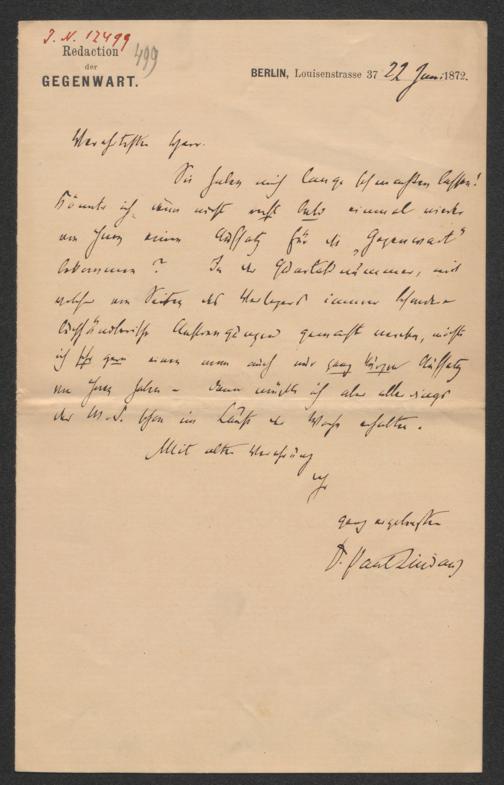 J. N. 12499
499
Redaction
der
GEGENWART.
BERLIN, Louisenstrasse 37 22 Juni 1872.
Verehrtester Herr.
Sie haben mich lange schmachten lassen!
Könnte ich nun nicht recht bald einmal wieder
von Ihnen einen Aufsatz für die „Gegenwart"
bekommen? In der Quartalsnummer, mit
welcher von Seiten des Verlegers immer besondere
buchhändlerische Anstrengungen gemacht werden, möchte
ich sehr gern einen wenn auch nur ganz kurzen Aufsatz
von Ihnen haben – dann müßte ich aber allerdings
das M.S. schon im Laufe der Woche erhalten.
Mit alter Verehrung
Ihr
ganz ergebenster
Dr. Paul Lindau